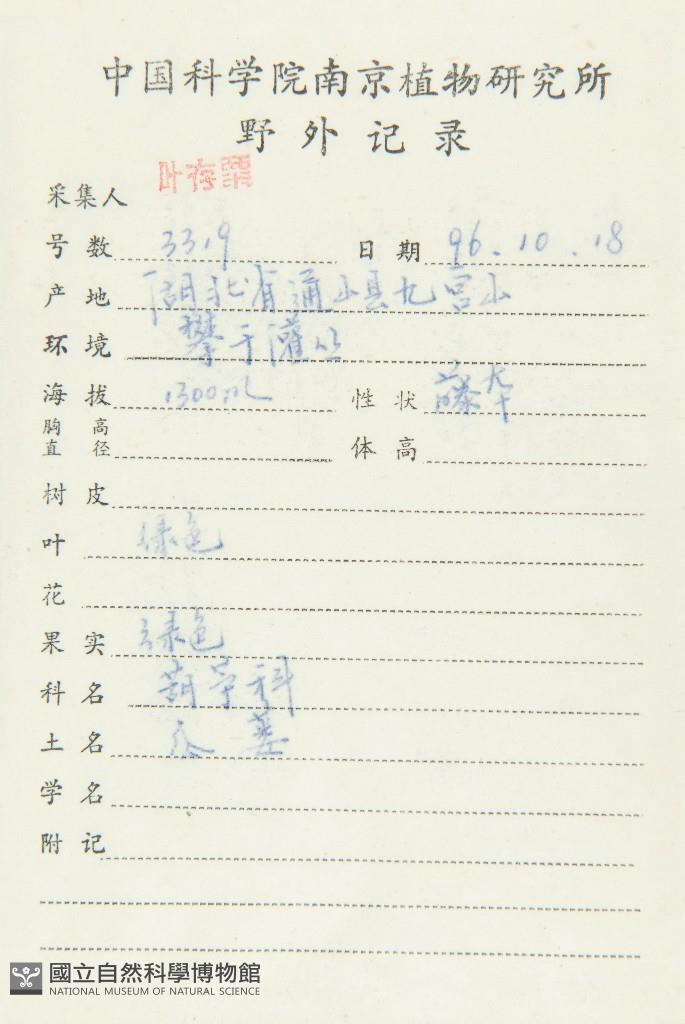 中国科学院南京植物研究所
野外记录
采集人 叶存粟
号数 3319 日期 96.10.18
产地 湖北省通山县九宫山
环境 攀于灌丛
海拔 1300m 性状 藤本
胸高直径 体高
树皮
叶 绿色
花
果实 绿色
科名 葡萄科
土名
学名
附记
國立自然科學博物館
NATIONAL MUSEUM OF NATURAL SCIENCE